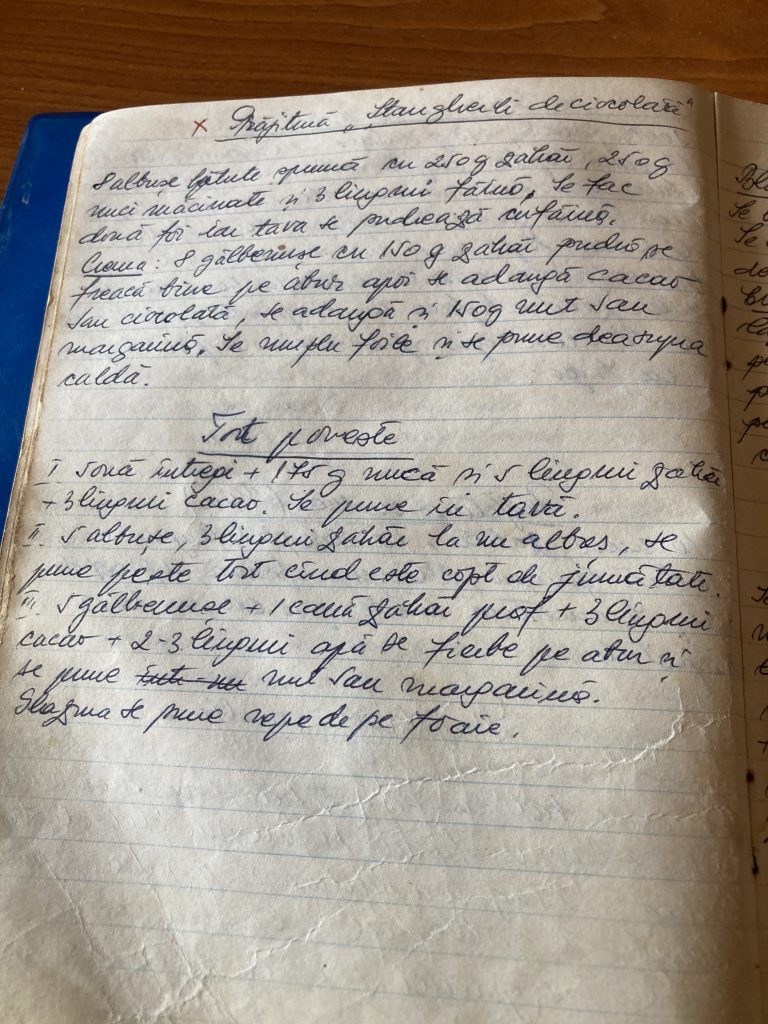 x Prăjitură „Stangherli de ciocolată"
8 albușe bătute spumă cu 250 g zahăr, 250 g
nuci măcinate și 3 linguri făină. Se fac
două foi iar tava se pudrează cu făină.
Crema: 8 gălbenușe cu 150 g zahăr pudră se
freacă bine pe abur apoi se adaugă cacao
sau ciocolată, se adaugă și 150g unt sau
margarină. Se umplu foile și se pune deasupra
caldă.
Tort poveste
I 5 ouă întregi + 175 g nucă și 5 linguri zahăr
+ 3 linguri cacao. Se pune în tavă.
II. 5 albușe, 3 linguri zahăr la un albuș, se
pune peste tort cînd este copt de jumătate.
III. 5 gălbenușe + 1 cană zahăr praf + 3 linguri
cacao + 2-3 linguri apă se fierbe pe abur și
se pune într-un unt sau margarină.
Glazura se pune repede pe foaie.